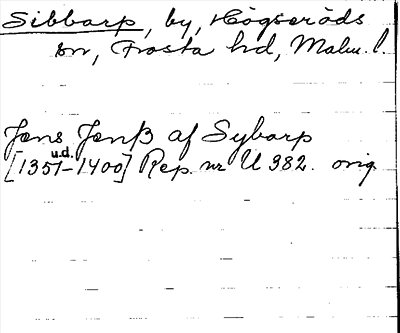 Sibbarp, by, Högseröds
sn, Frosta hd, Malm. l.
Jens Jenß af Sybarp
u.d.
[1351-1400] Rep. nr U 382. orig